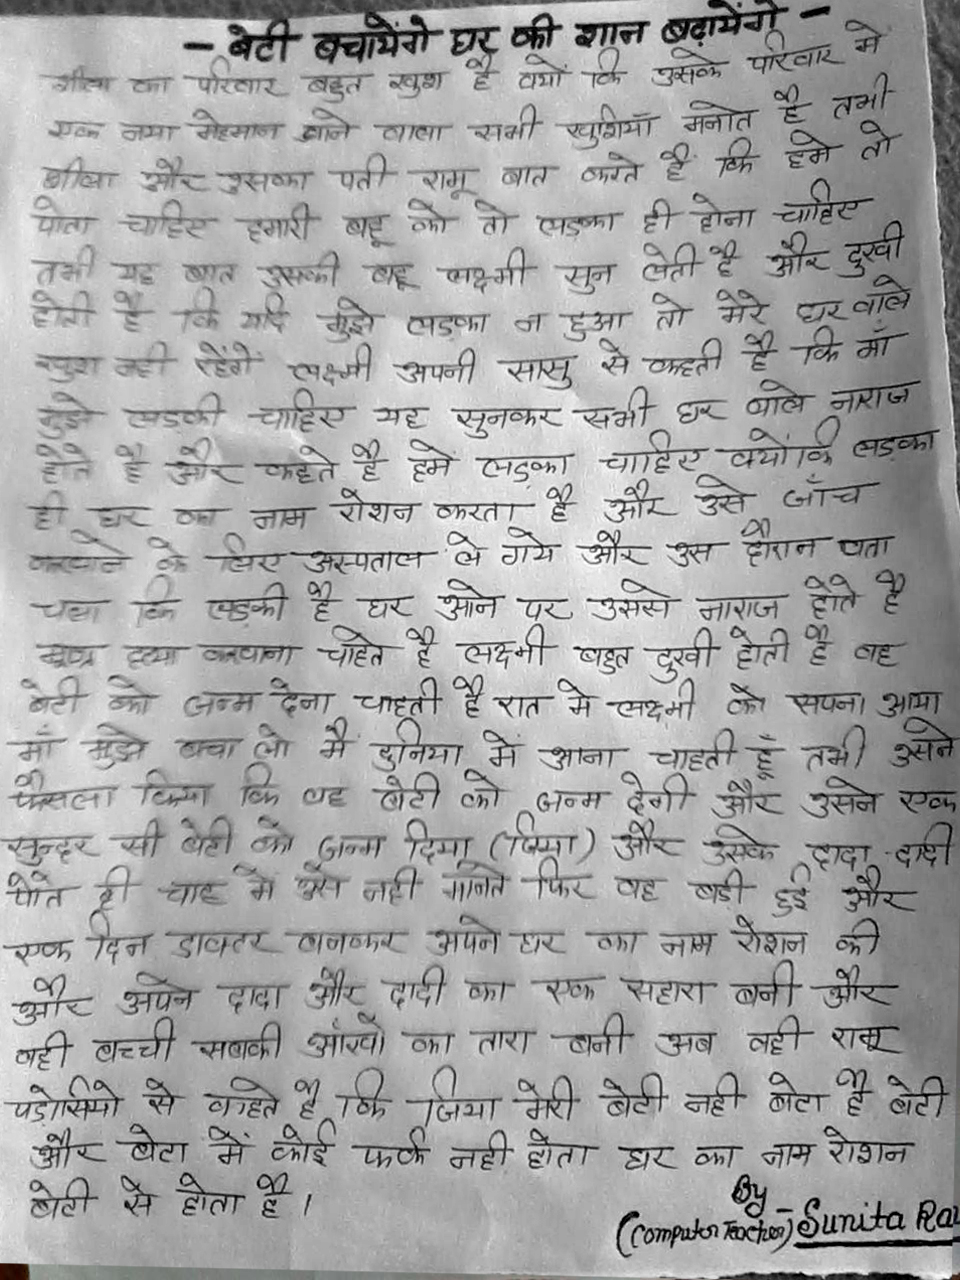 - बेटी बचायेंगे घर की शान बढ़ायेंगे -
शीला का परिवार बहुत खुश है क्यों कि उसके परिवार मे
एक नया मेहमान आने वाला सभी खुशियाँ मनाते है तभी
शीला और उसका पती रामू बात करते है कि हमे तो
पोता चाहिए हमारी बहू को तो लड़का ही होना चाहिए
तभी यह बात उसकी बहू लक्ष्मी सुन लेती है और दुखी
होती है कि यदि मुझे लड़का न हुआ तो मेरे घर वाले
खुश नही रहेंगे लक्ष्मी अपनी सासु से कहती है कि माँ
मुझे लड़की चाहिए यह सुनकर सभी घर वाले नाराज
होते है और कहते है हमें लड़का चाहिए क्योंकि लड़का
ही घर का नाम रोशन करता है और उसे जाँच
करवाने के लिए अस्पताल ले गये और उस दौरान पता
चला कि लड़की है घर आने पर उससे नाराज होते है
भ्रूण हत्या करवाना चाहते है लक्ष्मी बहुत दुखी होती है वह
बेटी को जन्म देना चाहती है रात मे लक्ष्मी को सपना आया
माँ मुझे बचा लो मैं दुनिया में आना चाहती हूँ तभी उसने
फैसला किया कि वह बेटी को जन्म देगी और उसने एक
सुन्दर सी बेटी को जन्म दिया (जिया) और उसके दादा-दादी
पोते ही चाह मे उसे नही मानते फिर वह बड़ी हुई और
एक दिन डाक्टर बनकर अपने घर का नाम रोशन की
और अपने दादा और दादी का एक सहारा बनी और
वही बच्ची सबकी आँखो का तारा बनी अब वही रामू
पड़ोसियो से कहते है कि जिया मेरी बेटी नही बेटा है बेटी
और बेटा में कोई फर्क नही होता घर का नाम रोशन
बेटी से होता है।
By
(Computer Teacher) - Sunita